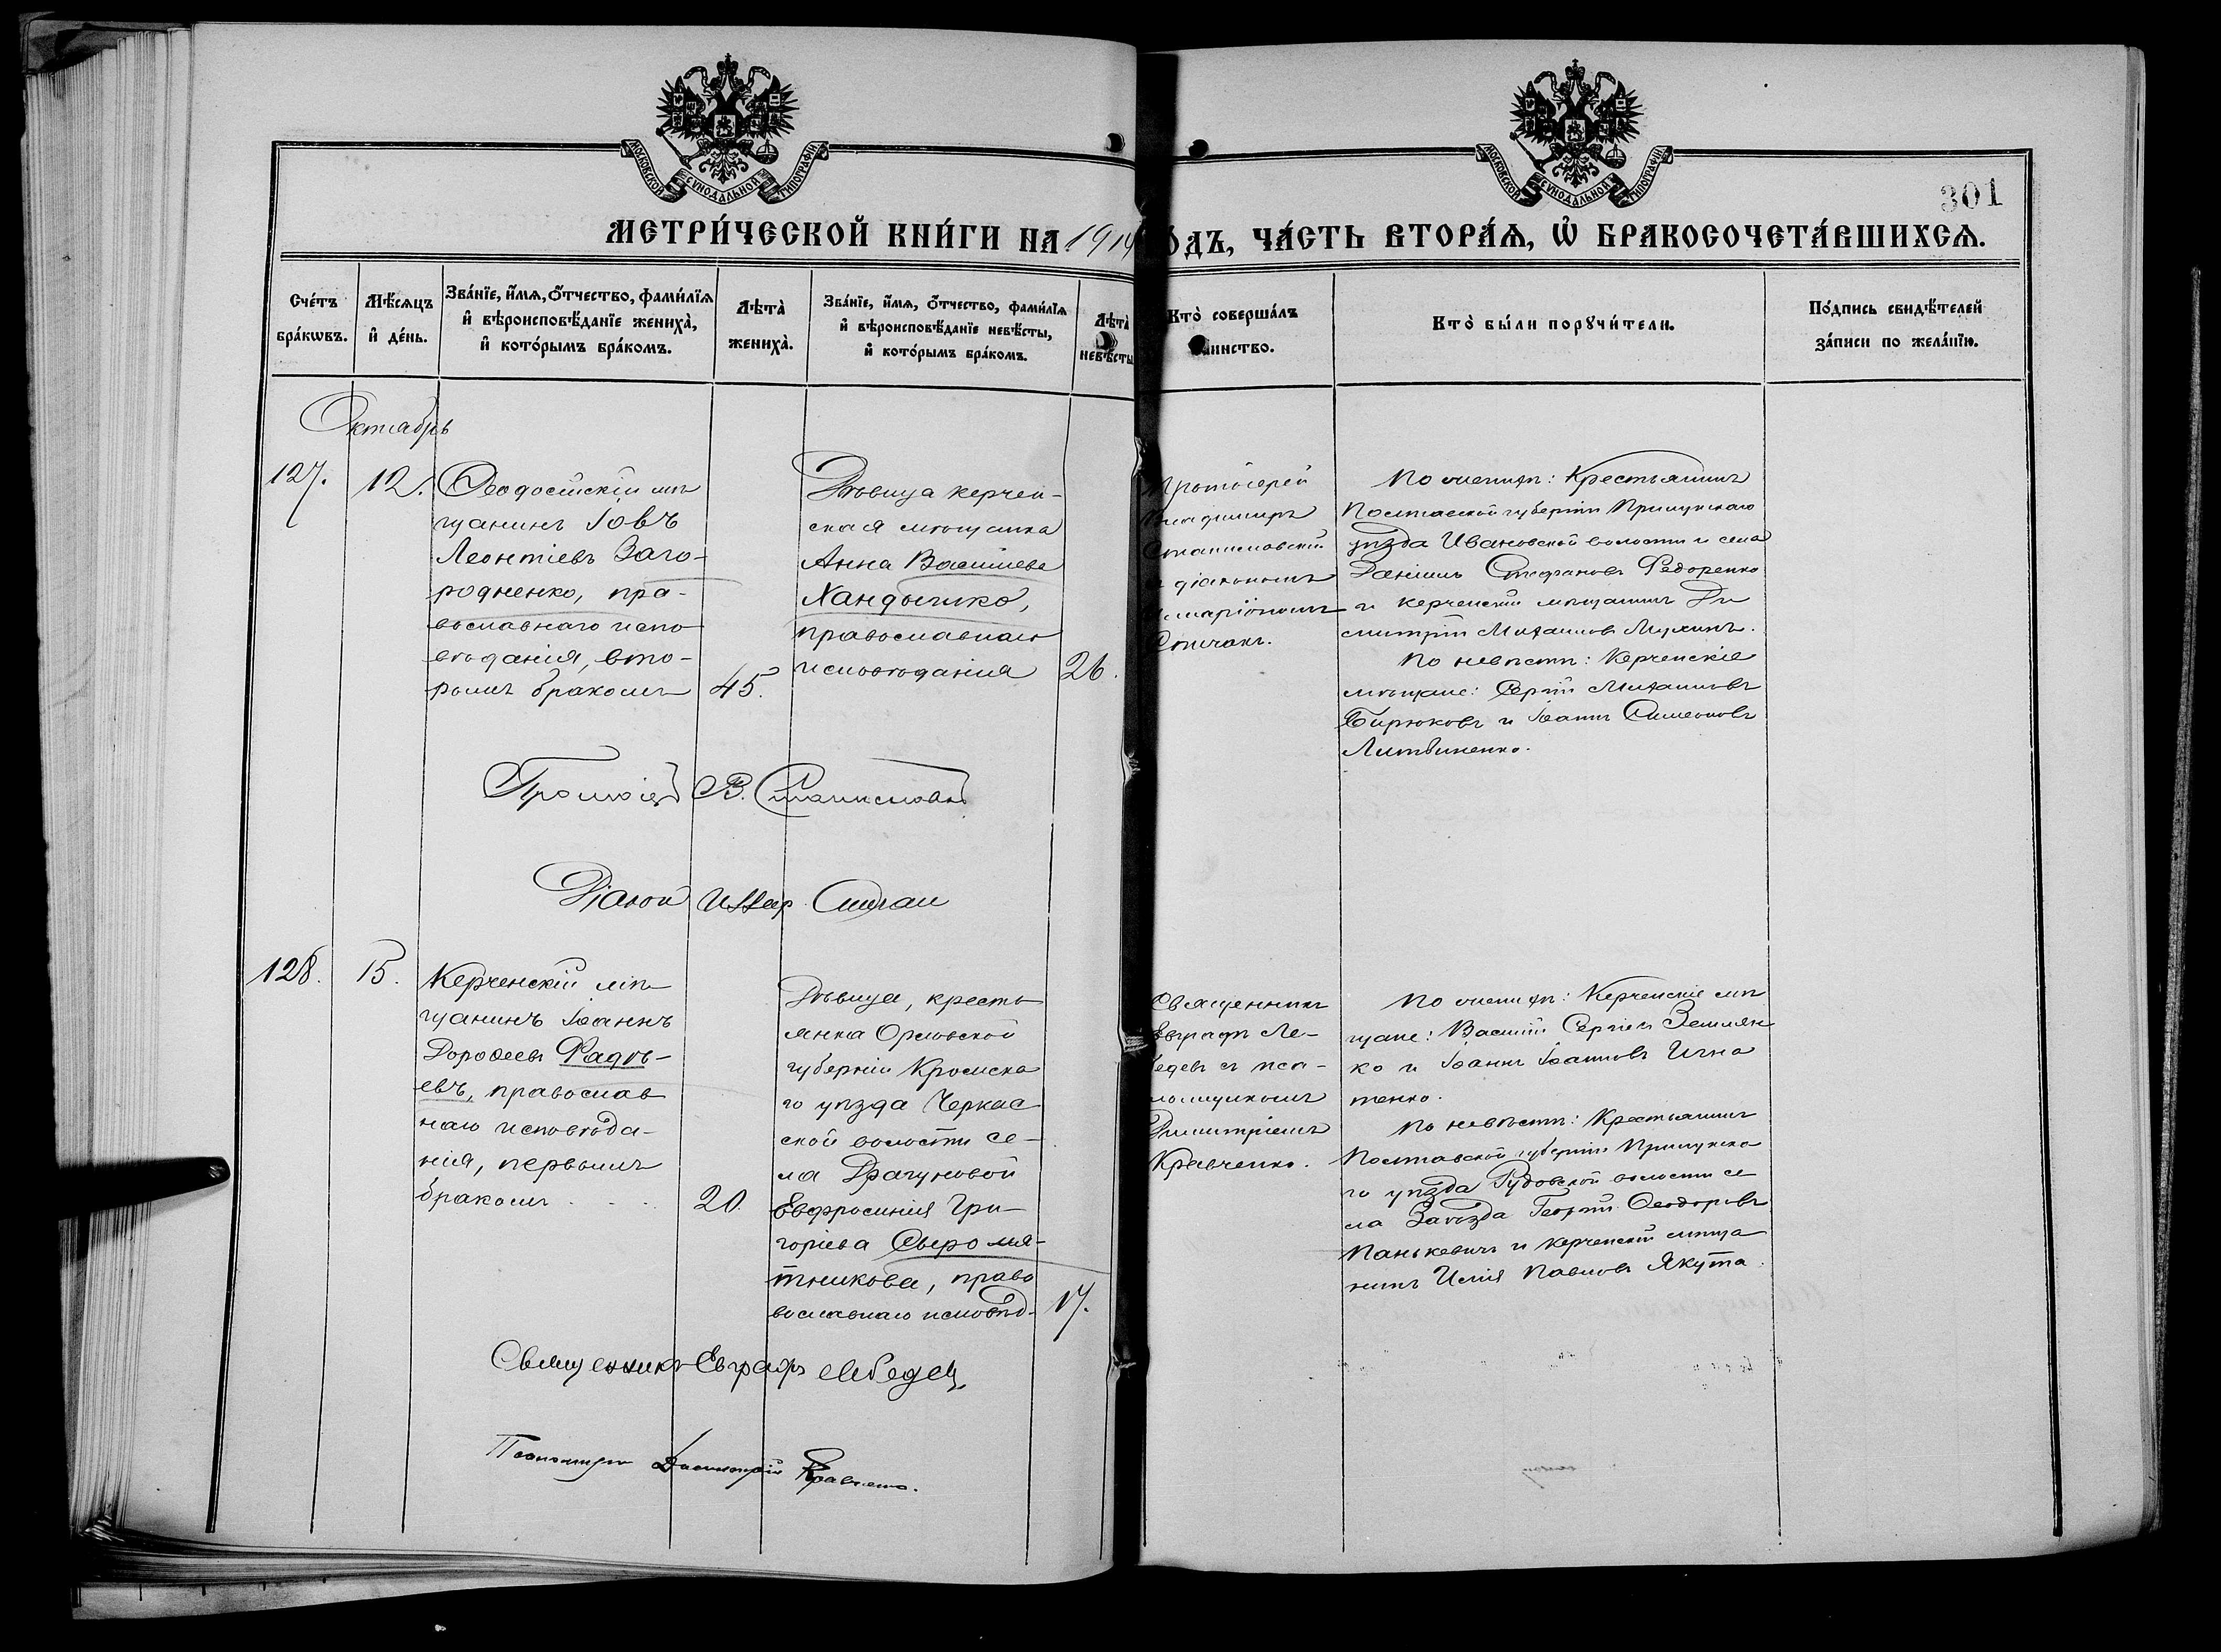 МОСКОВСКОЙ СУНОДАЛЬНОЙ ТИПОГРАФІИ
МОСКОВСКОЙ СУНОДАЛЬНОЙ ТИПОГРАФІИ
301
МЕТРИ́ЧЕСКОЙ КНИ́ГИ НА 1914
ОДЪ, ЧА́СТЬ ВТОРА́Ѧ, Ѡ҆ БРАКОСОЧЕТА́ВШИХСѦ.
Сче́тъ бра́кѡвъ.
Мѣ́сѧцъ и҆ де́нь.
Зва́нїе, и҆́мѧ, ѻ҆́тчество, фами́лїѧ и҆ вѣроисповѣ́данїе жениха̀, и҆ кото́рымъ бра́комъ.
Лѣта̀ жениха̀.
Зва́нїе, и҆́мѧ, ѻ҆́тчество, фами́лїѧ и҆ вѣроисповѣ́данїе невѣ́сты, и҆ кото́рымъ бра́комъ.
Лѣта̀ невѣ́сты
Кто̀ соверша́лъ
инство.
Кто̀ бы́ли порꙋчи́тели.
По́дпись свидѣ́телей за́писи по жела́нїю.
Октябрь
127.
12.
Ѳеодосійскій мѣ
щанинъ Іовъ
Леонтіевъ Заго-
родненко, пра-
вославнаго испо
вѣданія, вто-
рымъ бракомъ
45.
Дѣвица керчен-
ская мѣщанка
Анна Васильева
Хандычко,
православнаго
исповѣданія
26.
Протоіерей
Владимиръ
Станиславскій
съ діакономъ
Иларіономъ
Спичакъ.
По женихѣ: Крестьянинъ
Полтавской губерніи Прилукскаго
уѣзда Ивановской волости и села
Даніилъ Стефановъ Федоренко
и керченскій мѣщанинъ Ди
митрій Михаиловъ Мухинъ.
По невѣстѣ: Керченскіе
мѣщане: Сергій Михаиловъ
Бирюковъ и Іоаннъ Симеоновъ
Литвиненко.
Протоіер В. Станиславскі
Діакон Илар Спичак
128.
15.
Керченскій мѣ
щанинъ Іоаннъ
Дороѳеевъ Фадѣ-
евъ, православ
наго исповѣда-
нія, первымъ
бракомъ
20.
Дѣвица, кресть
янка Орловской
губерніи Кромска
го уѣзда Черкас
ской волости се-
ла Драгуновой
Евфросинія Гри-
горіева Сыромя-
тникова, право
вославнаго исповѣд.
17.
Священникъ
Евграфъ Ле-
бедевъ съ пса-
ломщикомъ
Димитріемъ
Кравченко.
По женихѣ: Керченскіе мѣ
щане: Василій Сергіевъ Землян
ко и Іоаннъ Іоанновъ Игна
тенко.
По невѣстѣ: Крестьянинъ
Полтавской губерніи Прилукска
го уѣзда Рудовской волости се
ла Заѣзда Георгій Ѳеодоровъ
Панькевичъ и керченскій мѣща
нинъ Илія Павловъ Якута.
Священникъ Евграфъ Лебедевъ
Псаломщикъ Димитрій Кравченко.